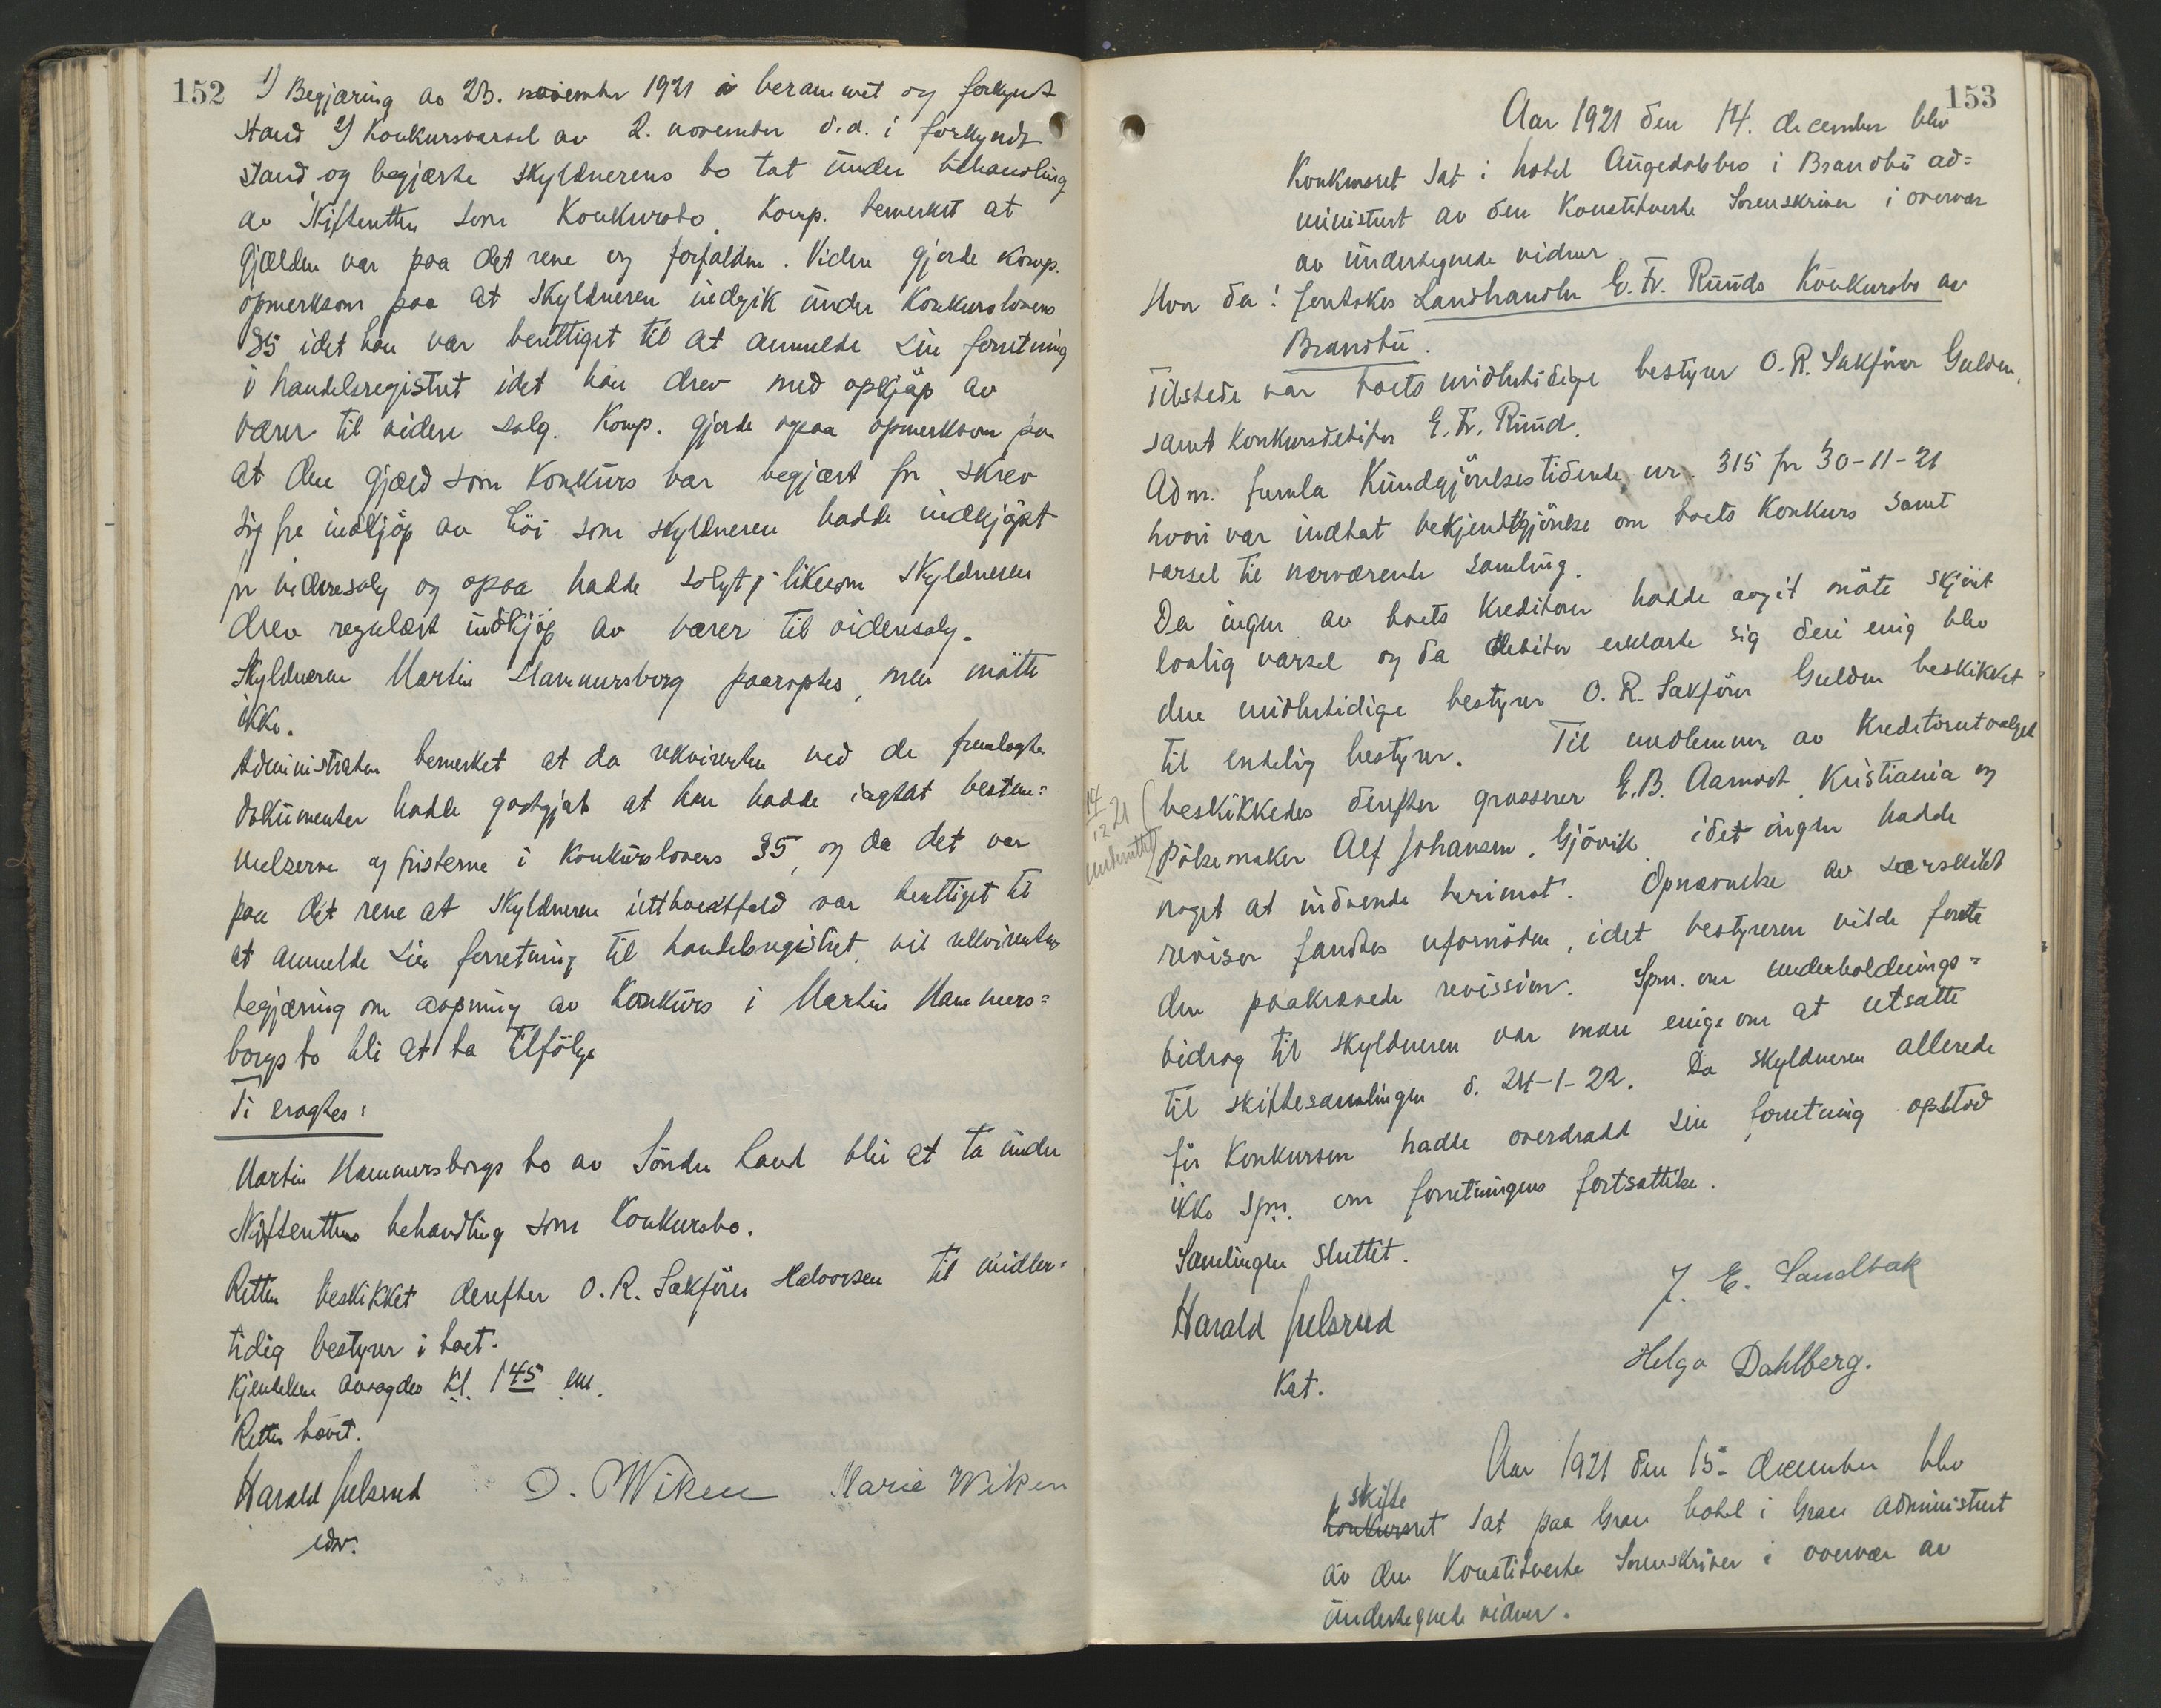 152
1) Begjæring av 23. november 1921 i berammet og forkyndt
stand 2) Konkursvarsel av 2. november d.a. i forkyndt
stand og begjærte skyldnerens bo tat under behandling
av skifteretten som konkursbo. Komp. bemerket at
gjælden var paa det rene og forfalden. Videre gjorde komp.
opmerksom paa at skyldneren indgik under konkurslovens
§5 idet han var berettiget til at anmelde sin forretning
i handelsregistret idet han drev med opkjøp av
varer til videre salg. Komp. gjorde ogsaa opmerksom paa
at den gjæld som konkurs var begjært for skrev
sig fra indkjøp av høi som skyldneren hadde indkjøpt
for videresalg og ogsaa hadde solgt, likesom skyldneren
drev regulært indkjøp av varer til videresalg.
Skyldneren Martin Hammersborg paaroptes, men møtte
ikke.
Administrator bemerket at da rekvirenten ved de fremlagte
dokumenter hadde godtgjort at han hadde iagttat bestem=
melserne og fristerne i konkurslovens §5, og da det var
paa det rene at skyldneren i ethvertfald var berettiget til
at anmelde sin forretning til handelsregistret, vil rekvirentens
begjæring om aapning av konkurs i Martin Hammers=
borgs bo bli at ta tilfølge
Ti eragtes:
Martin Hammersborgs bo av Søndre Land blir at ta under
skifterettens behandling som konkursbo.
Retten beskikket derefter O.R. Sakfører Halvorsen til midler=
tidig bestyrer i boet.
Kjendelsen avsagdes kl. 1 45 em.
Retten hævet.
Harald Julsrud D. Wiken Marie Wiken
edsv.
153
Aar 1921 den 14. december blev
Konkursret sat i hotel Augedalsbro i Brandbu ad=
ministrert av den konstituerte sorenskriver i overvær
av undertegnede vidner.
Hvor da: foretokes Landhandler E. Fr. Ruuds Konkursbo av
Brandbu.
Tilstede var boets midlertidige bestyrer O.R. Sakfører Gulden,
samt konkursdebitor E. Fr. Ruud.
Adm. fremla Kundgjørelsestidende nr. 315 for 30-11-21
hvori var indtat bekjendtgjørelse om boets konkurs samt
varsel til nærværende samling.
Da ingen av boets kreditorer hadde avgit møte skjønt
lovlig varsel og da debitor erklærte sig deri enig blev
den midlertidige bestyrer O. R. Sakfører Gulden beskikket
til endelig bestyrer. Til medlemmer av kreditorutvalget
14/12 21 beskikkedes derefter grosserer E.B. Aamodt, Kristiania og
underrettet pølsemaker Alf Johansen, Gjøvik idet ingen hadde
noget at indvende herimot. Opnævnelse av særskilt
revisor fandtes ufornøden, idet bestyreren vilde foreta
den paakrævede revission. Spm. om underholdnings=
bidrag til skyldneren var man enige om at utsætte
til skiftesamlingen d. 24-1-22. Da skyldneren allerede
før konkursen hadde overdradd sin forretning opstod
ikke spm. om forretningens fortsættelse.
Samlingen sluttet.
Harald Julsrud
Kst.
J. E. Sandbak
Helga Dahlberg.
Aar 1921 den 15. december blev
skifte
Konkursret sat paa Gran hotel i Gran administrert
av den konstituerte sorenskriver i overvær av
undertegnede vidner.